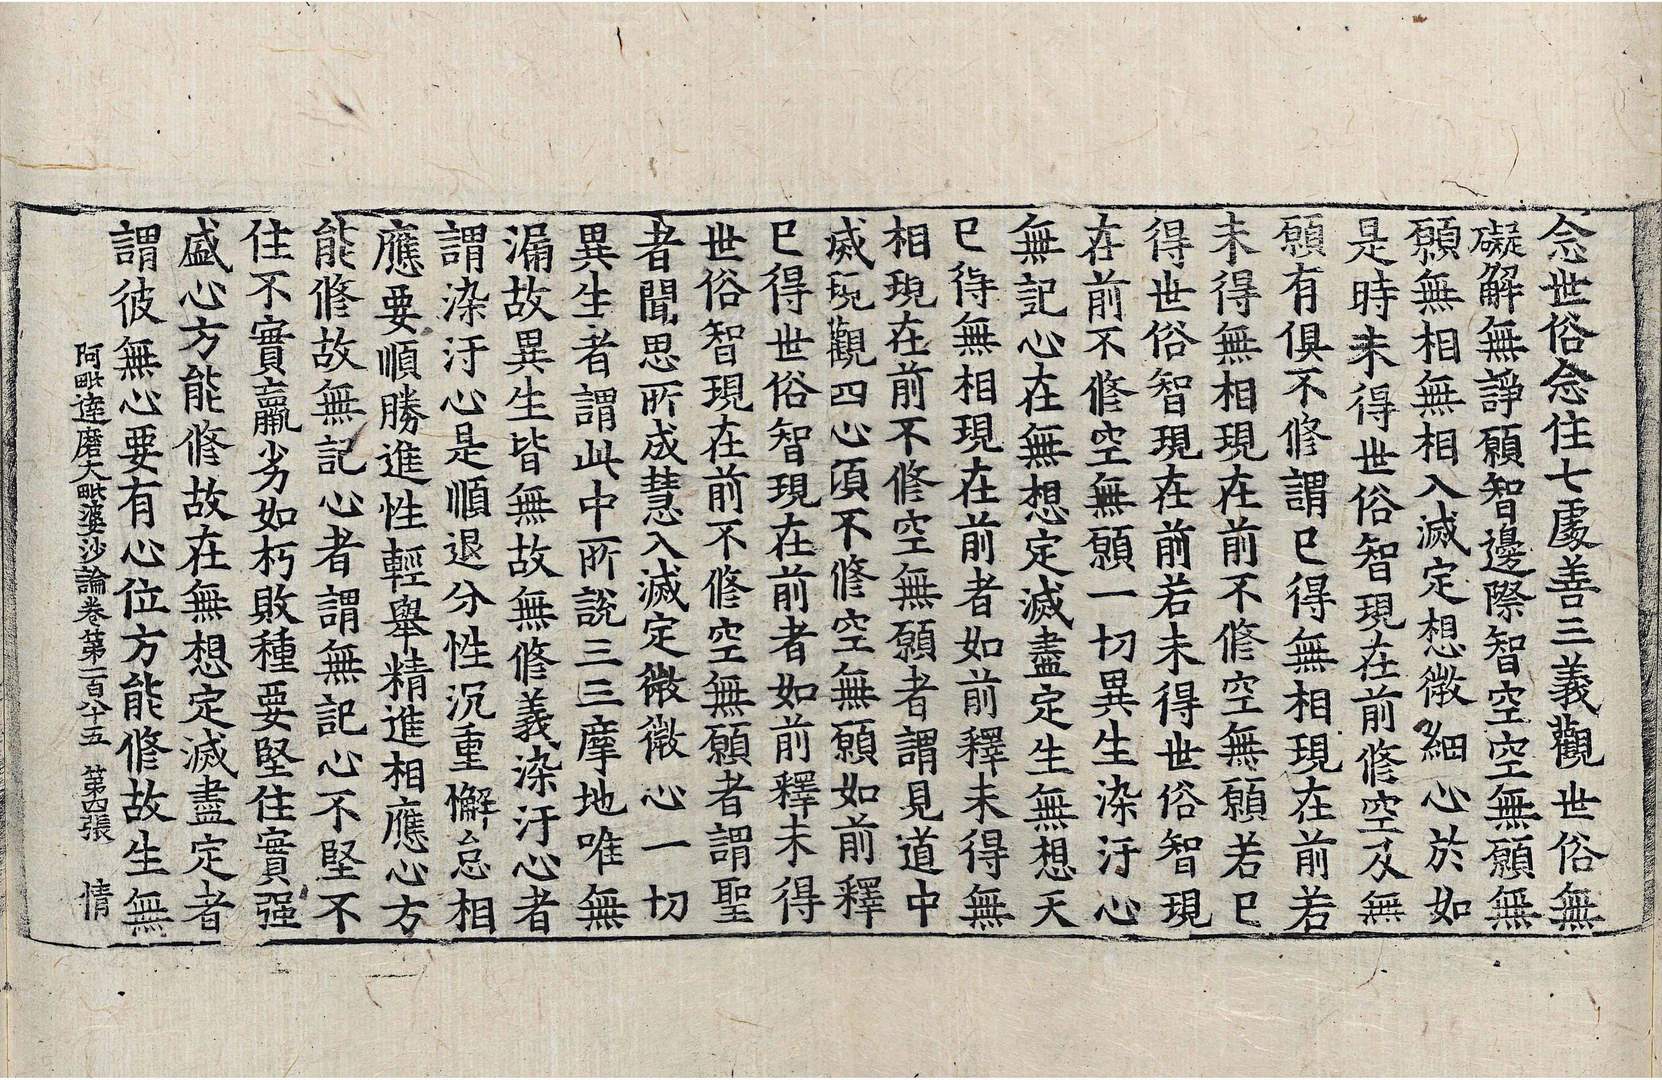 念世俗念住七處善三義觀世俗無
礙解無諍願智邊際智空空無願無
願無相無相入滅定想微細心於如
是時未得世俗智現在前修空及無
願有俱不修謂已得無相現在前若
未得無相現在前不修空無願若已
得世俗智現在前若未得世俗智現
在前不修空無願一切異生染汙心
無記心在無想定滅盡定生無想天
已得無相現在前者如前釋未得無
相現在前不修空無願者謂見道中
滅現觀四心須不修空無願如前釋
已得世俗智現在前者如前釋未得
世俗智現在前不修空無願者謂聖
者聞思所成慧入滅定微微心一切
異生者謂此中所說三三摩地唯無
漏故異生皆無故無修義染汙心者
謂染汙心是順退分性沉重懈怠相
應要順勝進性輕舉精進相應心方
能修故無記心者謂無記心不堅不
住不實羸劣如朽敗種要堅住實强
盛心方能修故在無想定滅盡定者
謂彼無心要有心位方能修故生無
阿毗達磨大毗婆沙論卷第一百八十五 第四張 情